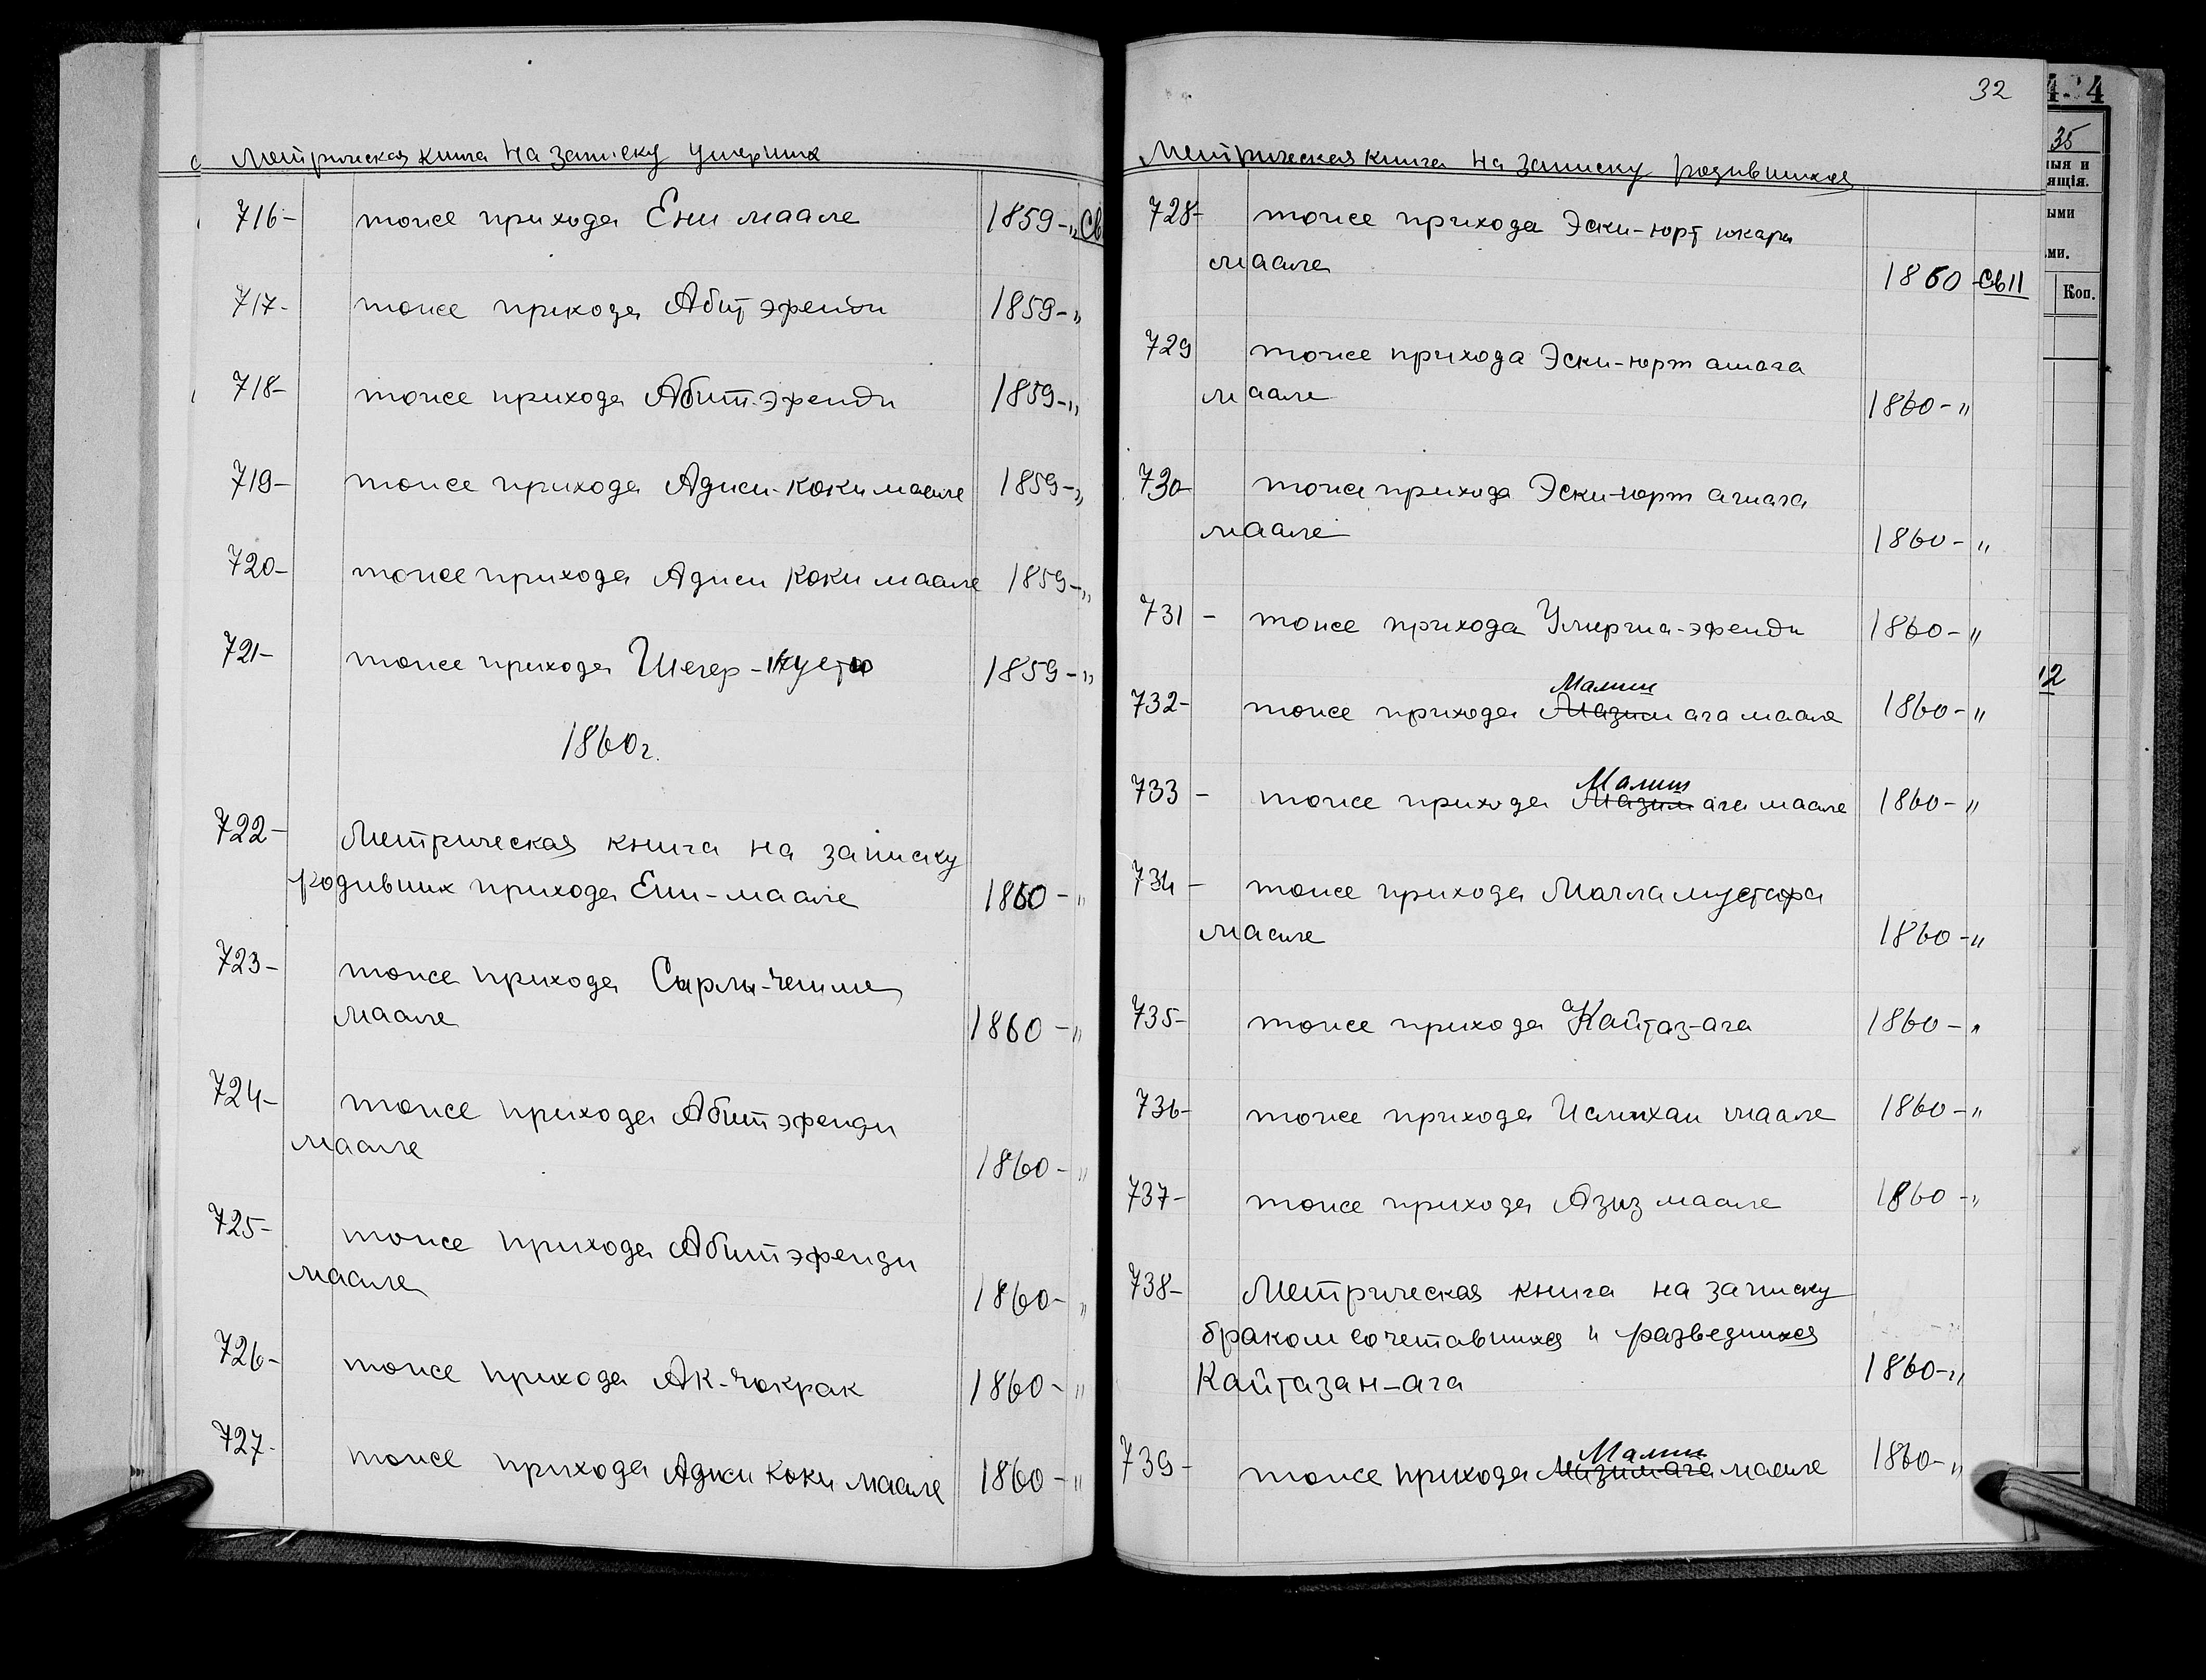 Метрическая книга на записку умерших
716- тоже прихода Ени маале 1859-" Св
717- тоже прихода Абит эфенди 1859-"
718- тоже прихода Абит-эфенди 1859-"
719- тоже прихода Аджи-коки маале 1859-"
720- тоже прихода Аджи коки маале 1859-"
721- тоже прихода Шегер- 1859-"
1860г.
722- Метрическая книга на записку
родивших прихода Ени-маале 1860-"
723- тоже прихода Сарлы-чешме
маале 1860-"
724- тоже прихода Абит эфенди
маале 1860-"
725- тоже прихода Абит эфенди
маале 1860-"
726- тоже прихода Ак-чокрак 1860-"
727- тоже прихода Аджи коки маале 1860-"
32
Метрическая книга на записку родившихся
728- тоже прихода Эски-юрт юкари
маале 1860-Св11
729 тоже прихода Эски-юрт ашага
маале 1860-"
730- тоже прихода Эски-юрт ашага
маале 1860-"
731- тоже прихода -эфенди 1860-"
Малиш
732- тоже прихода ага маале 1860-"
Малиш
733- тоже прихода Мазин ага маале 1860-"
734- тоже прихода Молла мустафа
маале 1860-"
735- тоже прихода Кайтаз-ага 1860-"
736- тоже прихода Исмихан маале 1860-"
737- тоже прихода Азиз маале 1860-"
738- Метрическая книга на записку
браком сочетавшихся и разведшихся
Кайтазан-ага 1860-"
Малиш
739- тоже прихода маале 1860-"
4-4
35
ыя и
ящія.
ыми
ми.
Коп.
12